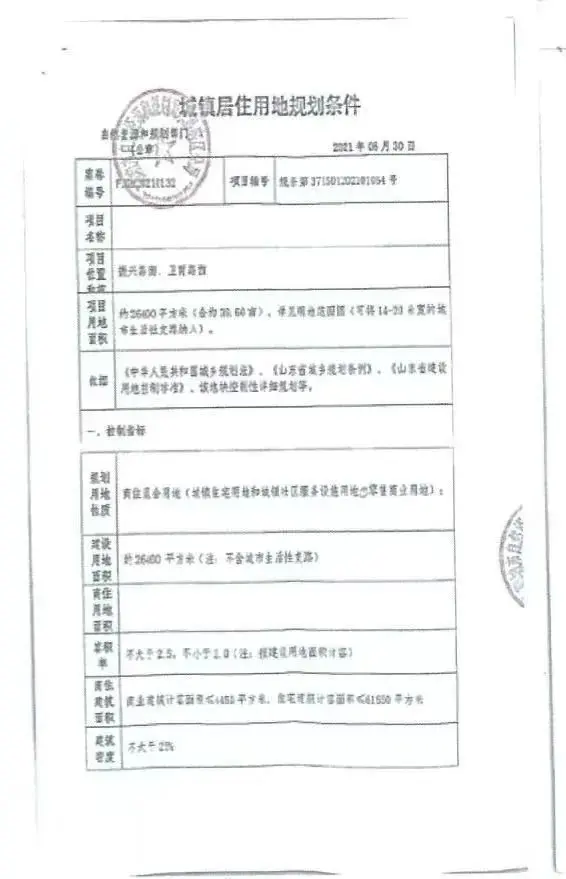 城镇居住用地规划条件
自然资源和规划部门
（公章）
2021 年 06 月 30 日
案卷
编号
项目编号
规条第 371501202101054 号
项目
名称
项目
位置
振兴路南、卫育路西
项目
用地
面积
约26400 平方米（合约 39.60 亩），详见用地范围图（可将 14-20 米宽的城
市生活性支路纳入）。
依据
《中华人民共和国城乡规划法》、《山东省城乡规划条例》、《山东省建设
用地控制标准》、该地块控制性详细规划等。
一、控制指标
规划
用地
性质
商住混合用地（城镇住宅用地和城镇社区服务设施用地 零售商业用地）；
建设
用地
面积
约 26400 平方米（注：不含城市生活性支路）
商住
用地
面积
容积
率
不大于 2.5，不小于 1.0（注：按建设用地面积计容）
商住
建筑
面积
商业建筑计容面积≤4450 平方米，住宅建筑计容面积≤61550 平方米
建筑
密度
不大于 25%